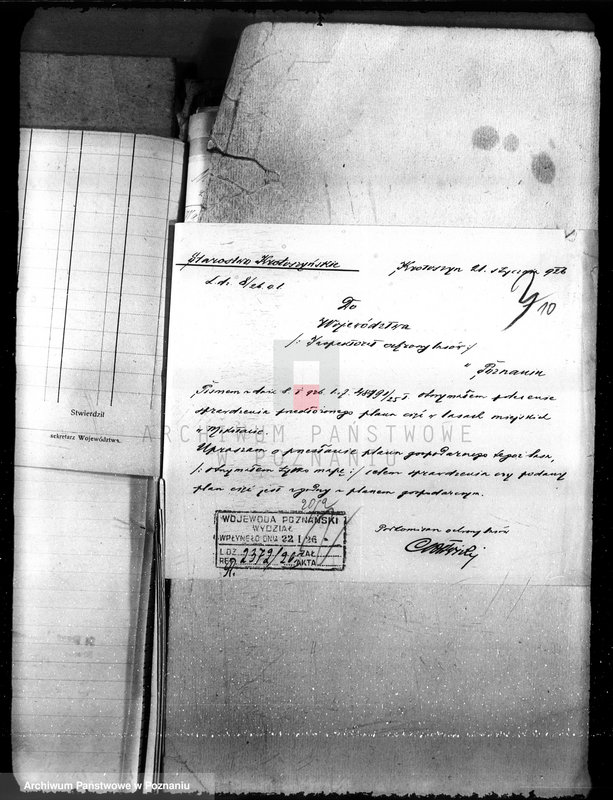 Starostwo Krotoszyńskie
Krotoszyn 21. stycznia 926
L.dz. 8/26 ol.
10
Do
Województwa
/: Inspektorat ochrony lasów :/
w Poznaniu
Pismem z dnia 8 I 926 L.dz. 48191/25 I. otrzymałem polecenie
sprawdzenia przedłożonego planu cięć w lasach miejskich
w
Upraszam o przesłanie planu gospodarczego tegoż lasu,
/: otrzymałem tylko mapę :/ celem sprawdzenia czy podany
plan cięć jest zgodny z planem gospodarczym.
Stwierdził
sekretarz Województwa.
WOJEWODA POZNAŃSKI
WYDZIAŁ
WPŁYNĘŁO DNIA 22 I 26
L.DZ. 2372/26 ZAŁ.
REF. AKTA
ochrony lasów
ARCHIWUM PAŃSTWOWE
W POZNANIU
Archiwum Państwowe w Poznaniu